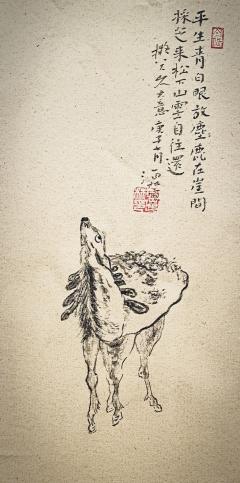 平生青白眼放塵鹿在崖間
採芝来松下山雲自往還
擬八大意庚子七月